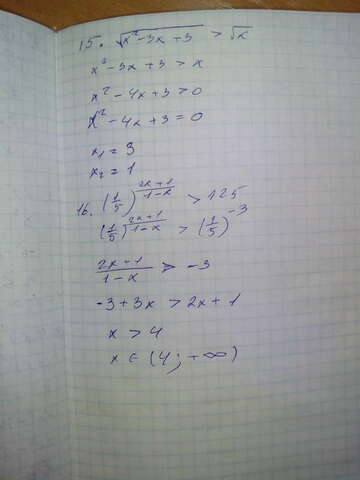 15. √(x²-3x+3) > √x
x²-3x+3 > x
x²-4x+3 > 0
x²-4x+3 = 0
x₁ = 3
x₂ = 1
16. (1/5)^((2x+1)/(1-x)) > 125
(1/5)^((2x+1)/(1-x)) > (1/5)^(-3)
(2x+1)/(1-x) > -3
-3+3x > 2x+1
x > 4
x ∈ (4; +∞)